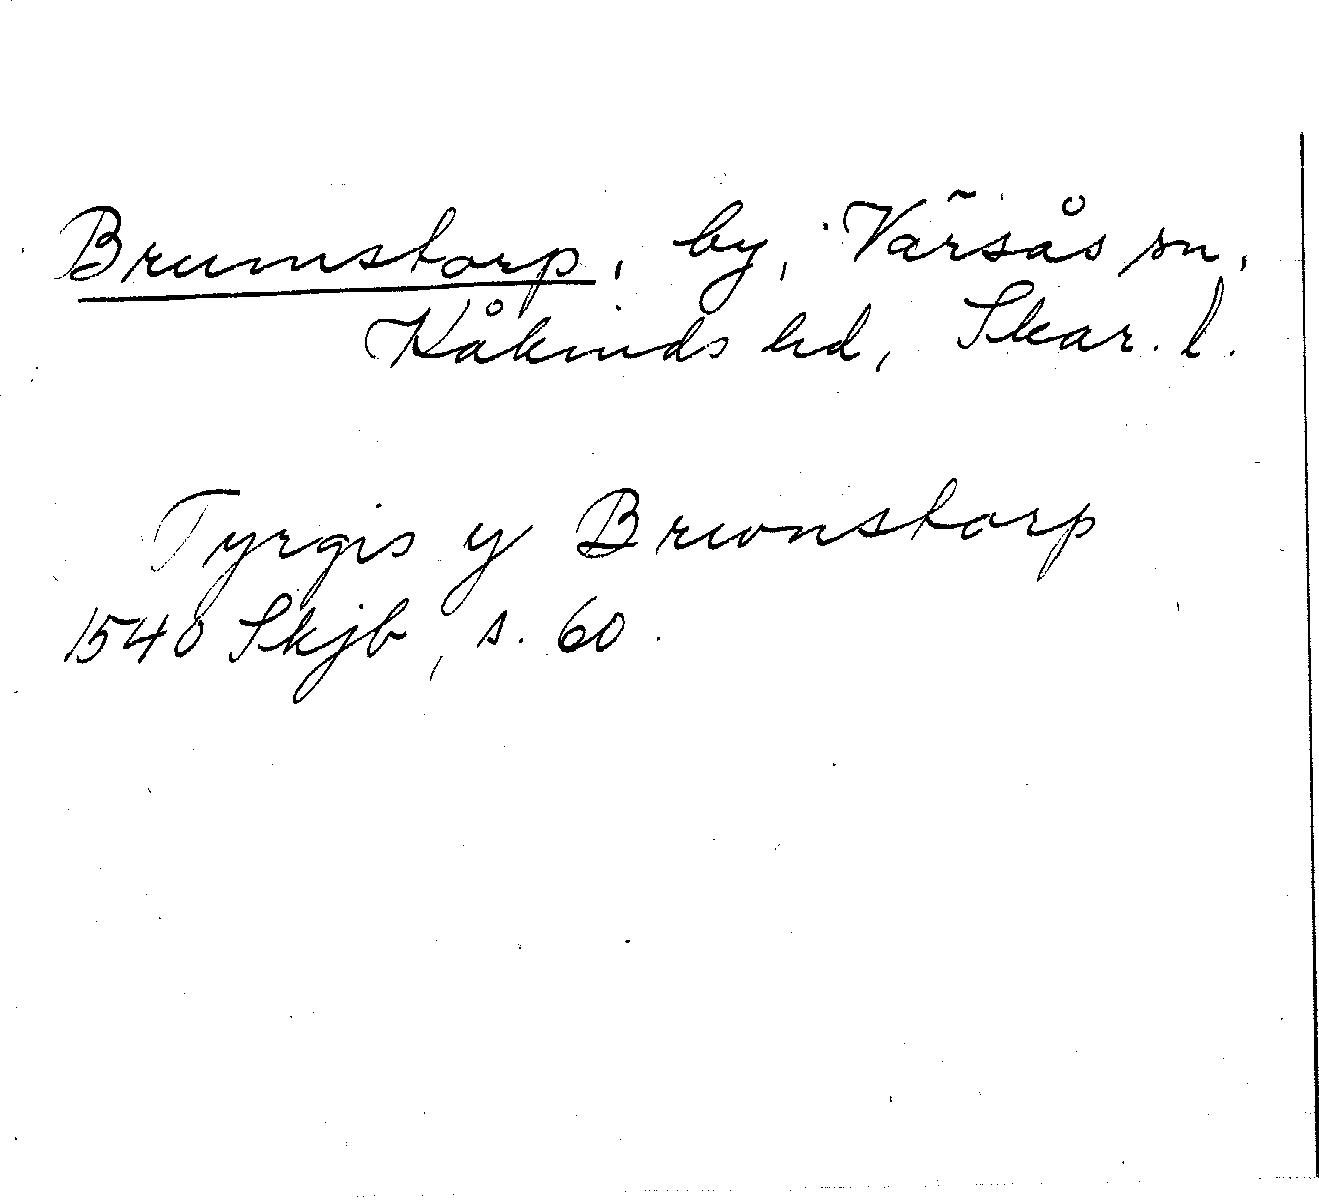 Brumstorp, by, Värsås sn,
Kåkinds hd, Skar. l.
Tyrgis y Brwnstorp
1540 Skjb, s. 60.